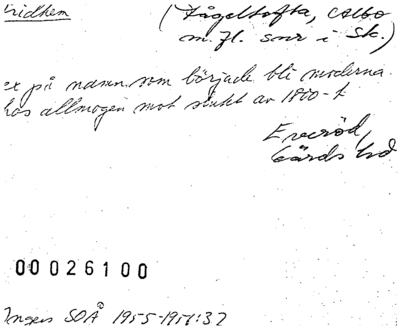 ridhem
(Fågeltofta, Albo
m.fl. snr i Sk.)
ex på namn som började bli moderna
hos allmogen mot slutet av 1800-t.
Everöd,
Gärds hd
00026100
Ingers SOÅ 1955-1956:32